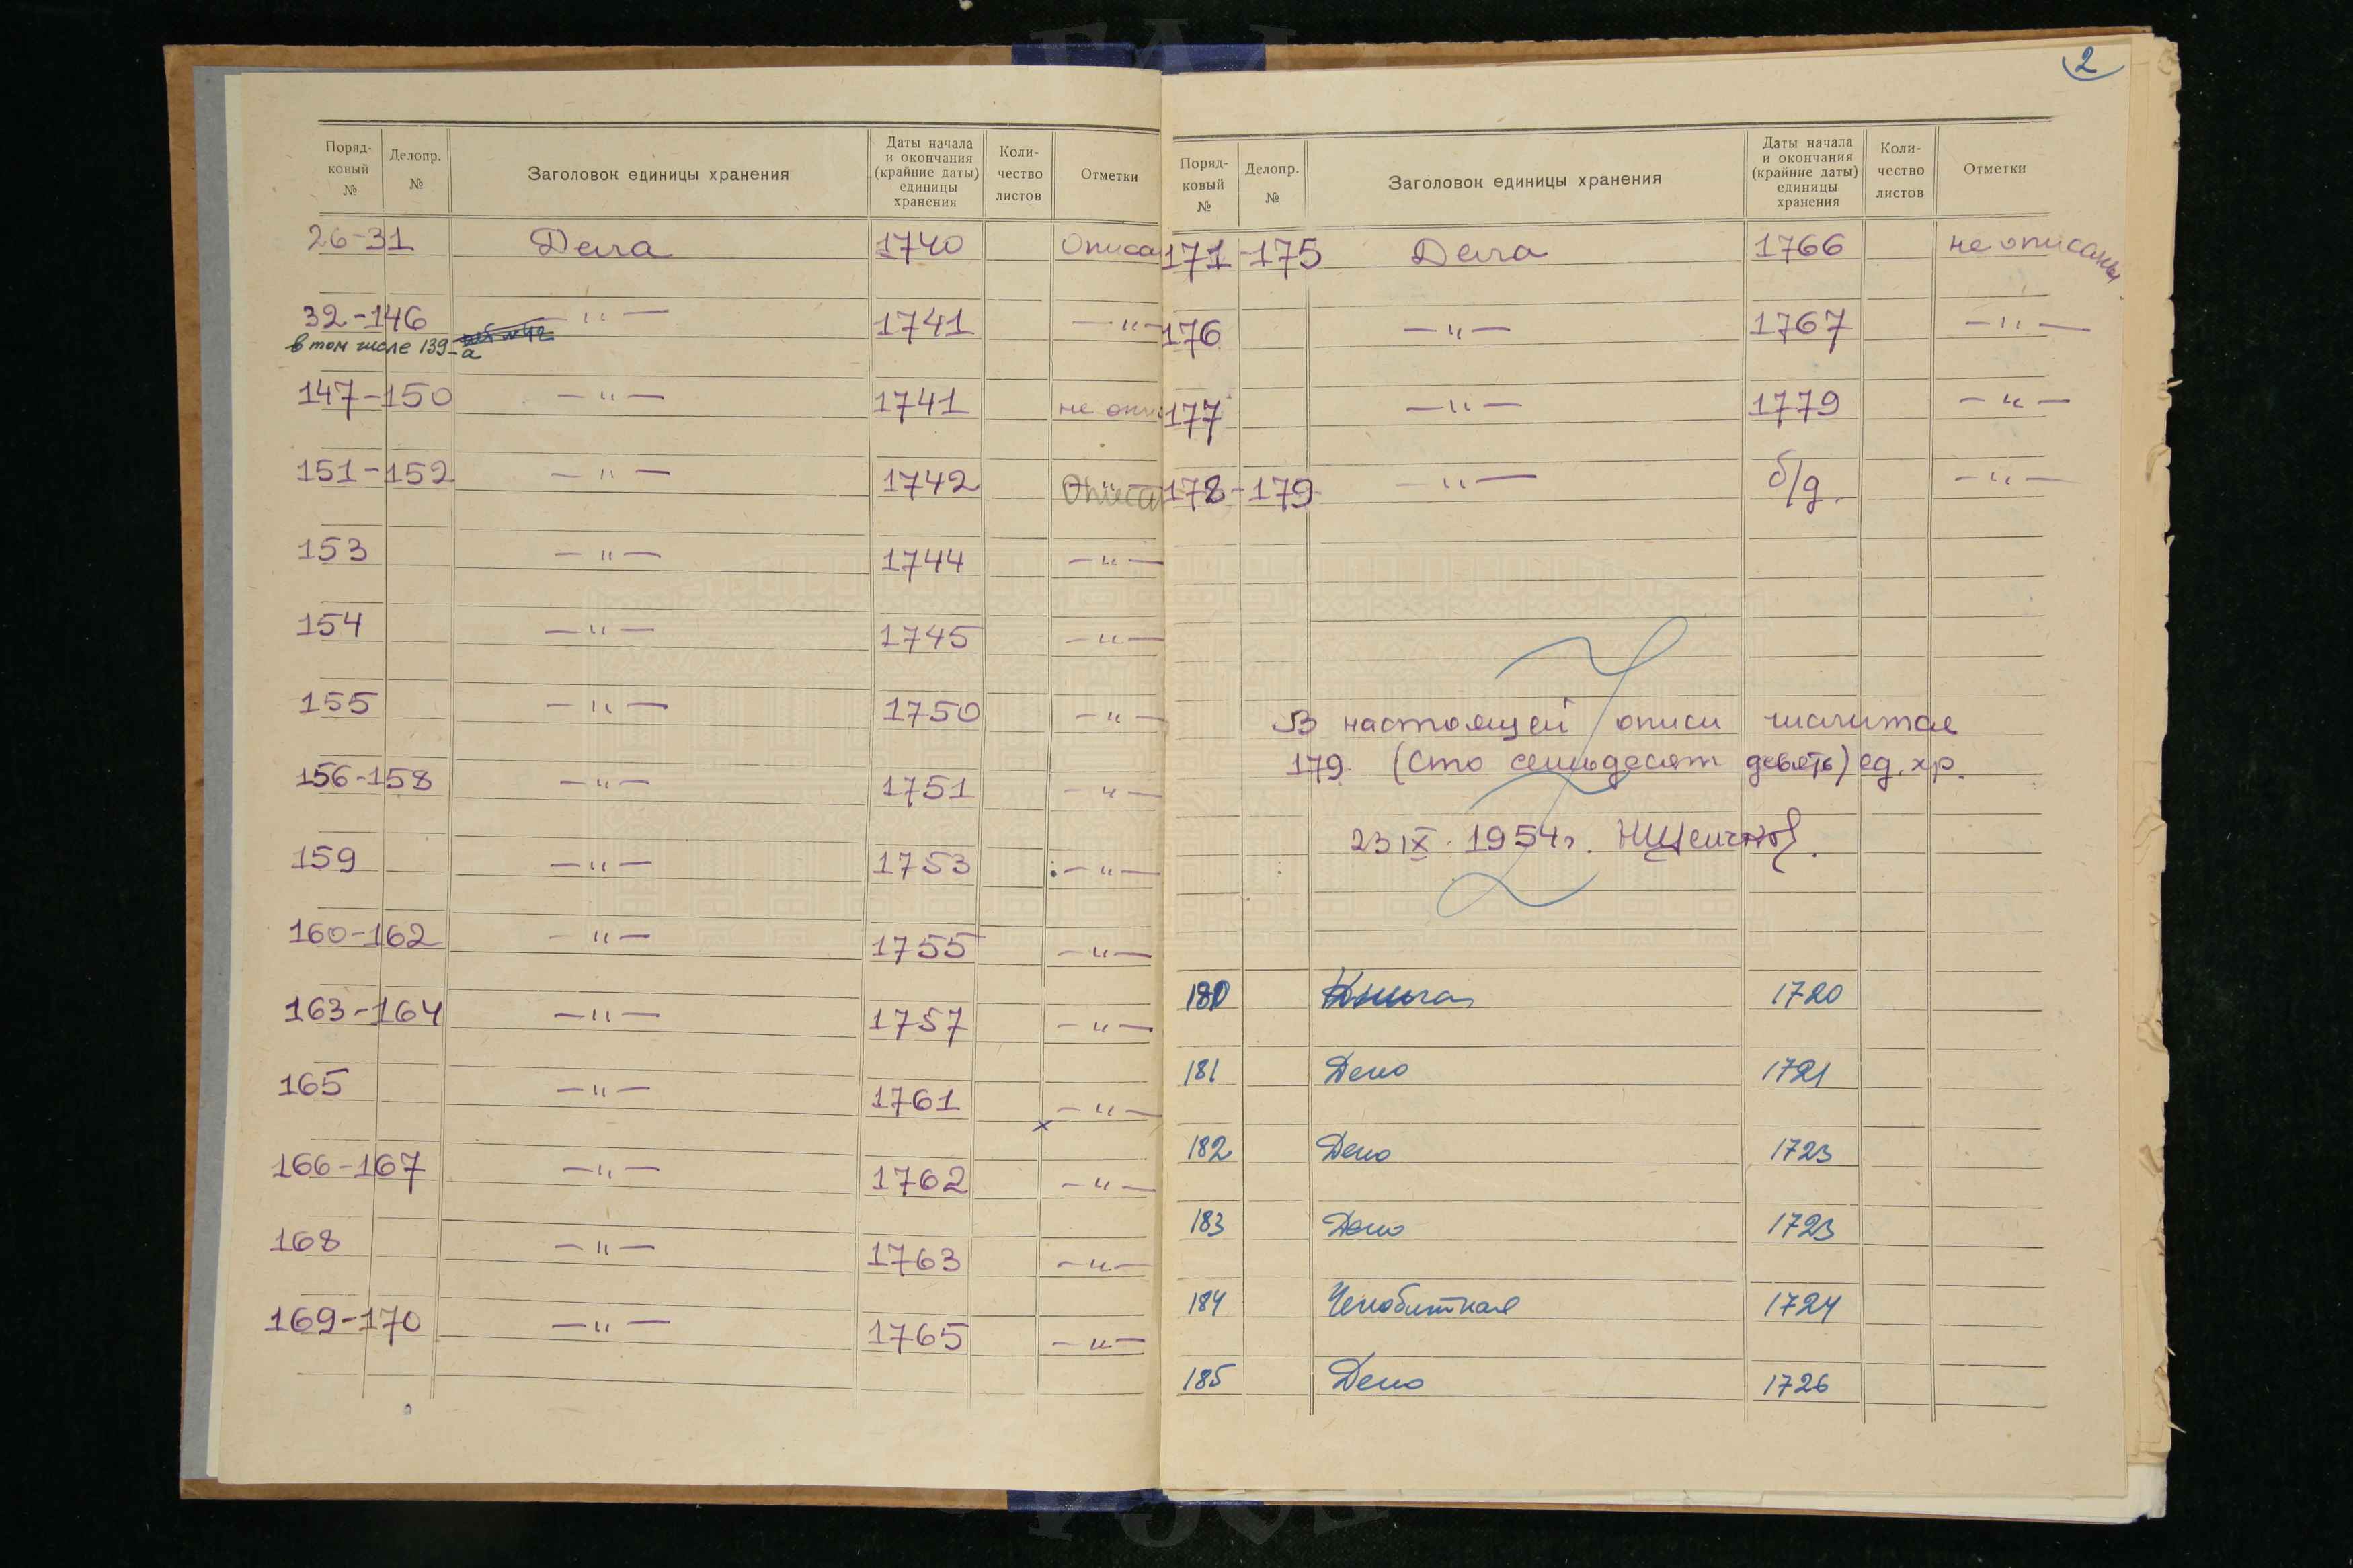 Поряд-
ковый
№
Делопр.
№
Заголовок единицы хранения
Даты начала
и окончания
(крайние даты)
единицы
хранения
Коли-
чество
листов
Отметки
26-31 Дела 1740 Описа
32-146 — " — 1741 — " —
в том числе 139-а
147-150 — " — 1741 не опи
151-152 — " — 1742 Описа
153 — " — 1744 — " —
154 — " — 1745 — " —
155 — " — 1750 — " —
156-158 — " — 1751 — " —
159 — " — 1753 — " —
160-162 — " — 1755 — " —
163-164 — " — 1757 — " —
165 — " — 1761 — " —
166-167 — " — 1762 — " —
168 — " — 1763 — " —
169-170 — " — 1765 — " —
2
Поряд-
ковый
№
Делопр.
№
Заголовок единицы хранения
Даты начала
и окончания
(крайние даты)
единицы
хранения
Коли-
чество
листов
Отметки
171-175 Дела 1766 не описаны
176 — " — 1767 — " —
177 — " — 1779 — " —
178-179 — " — б/д. — " —
В настоящей описи числится
179 (Сто семьдесят девять) ед. хр.
23 IX. 1954 г.
180 Книга 1720
181 Дело 1721
182 Дело 1723
183 Дело 1723
184 Челобитная 1724
185 Дело 1726